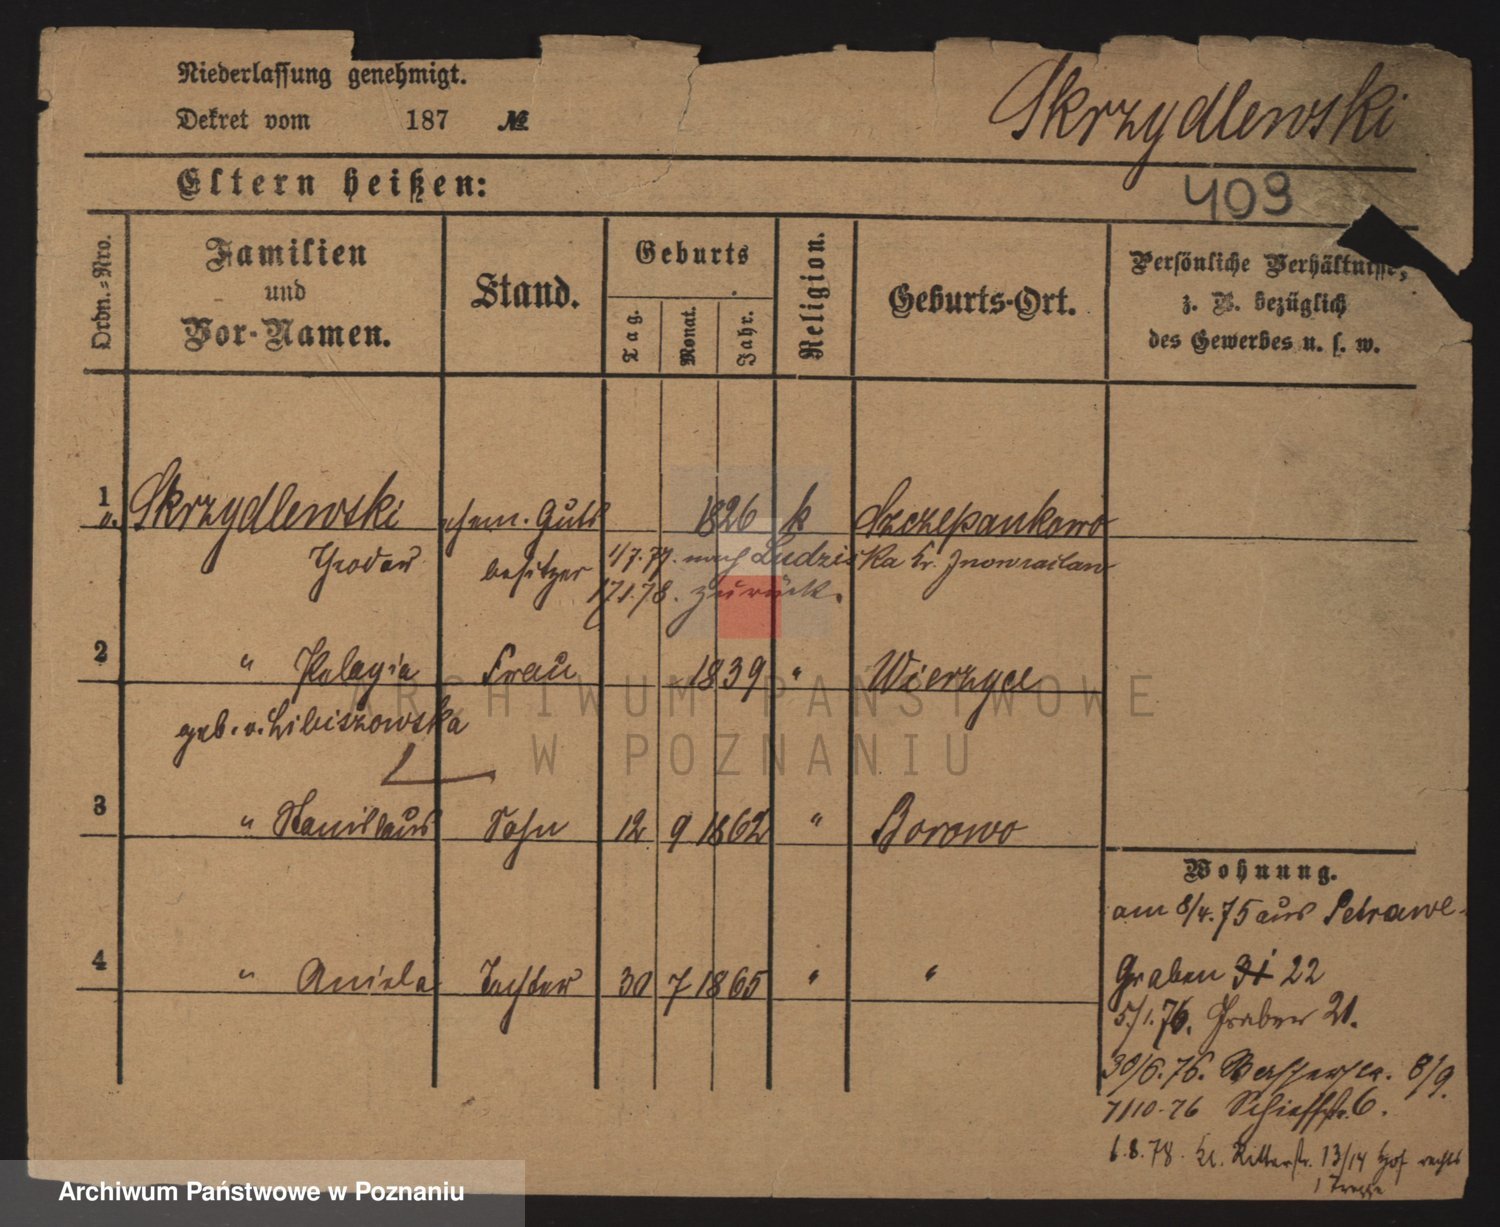 Niederlassung genehmigt.
Dekret vom 187 №
Skrzydlewski
Eltern heißen:
409
Ordn.=Nro.
Familien
und
Vor-Namen.
Stand.
Geburts
Tag.
Monat.
Jahr.
Religion.
Geburts-Ort.
Persönliche Verhältnisse,
z. B. bezüglich
des Gewerbes u. s. w.
1 v. Skrzydlewski ehem. Guts 1826 k Szczepankowo
Theodor besitzer 1/7.77. nach Ludziska Kr. Inowraclaw
17/1.78. zurück.
2 " Pelagia Frau 1839 " Wierzyce
geb. v. Libiszowska
3 " Stanislaus Sohn 12 9 1862 " Borowo
4 " Aniela Tochter 30 7 1865 " "
Wohnung.
am 8/4.75 aus
Graben 31 22
5/1.76. Graben 21.
30/6.76. Wasserstr. 8/9.
7/10.76 Schießstr. 6.
1.8.78. Kl. Ritterstr. 13/14 Hof rechts
1 Treppe
ARCHIWUM PAŃSTWOWE
W POZNANIU
Archiwum Państwowe w Poznaniu